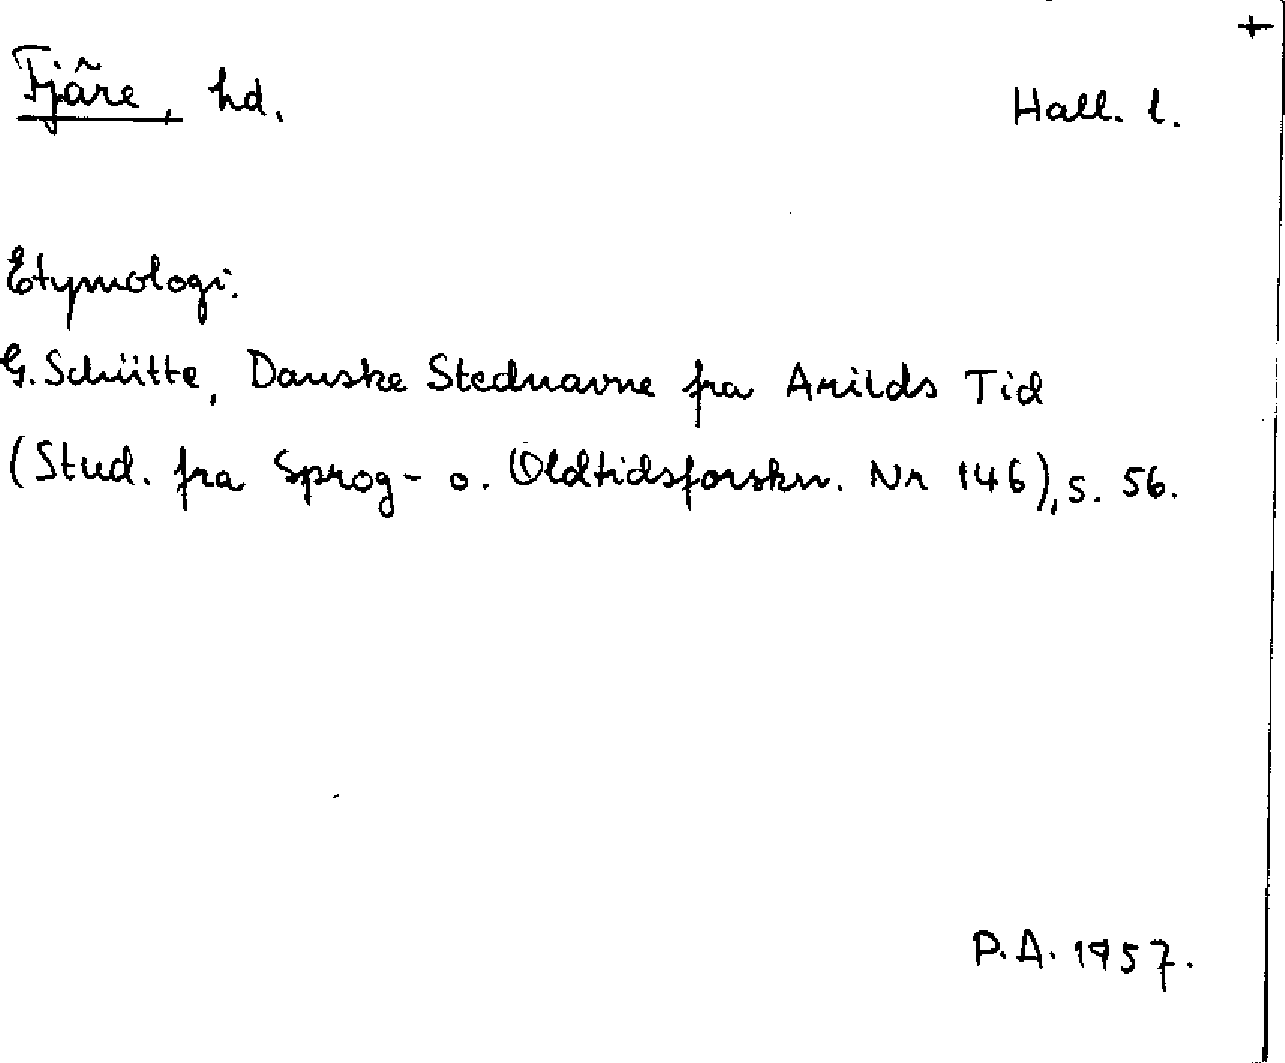 +
Fjäre, hd. Hall. l.
Etymologi.
G. Schütte, Danske Stednavne fra Arilds Tid
(Stud. fra Sprog- o. Oldtidsforskn. Nr 146), s. 56.
P.A. 1957.